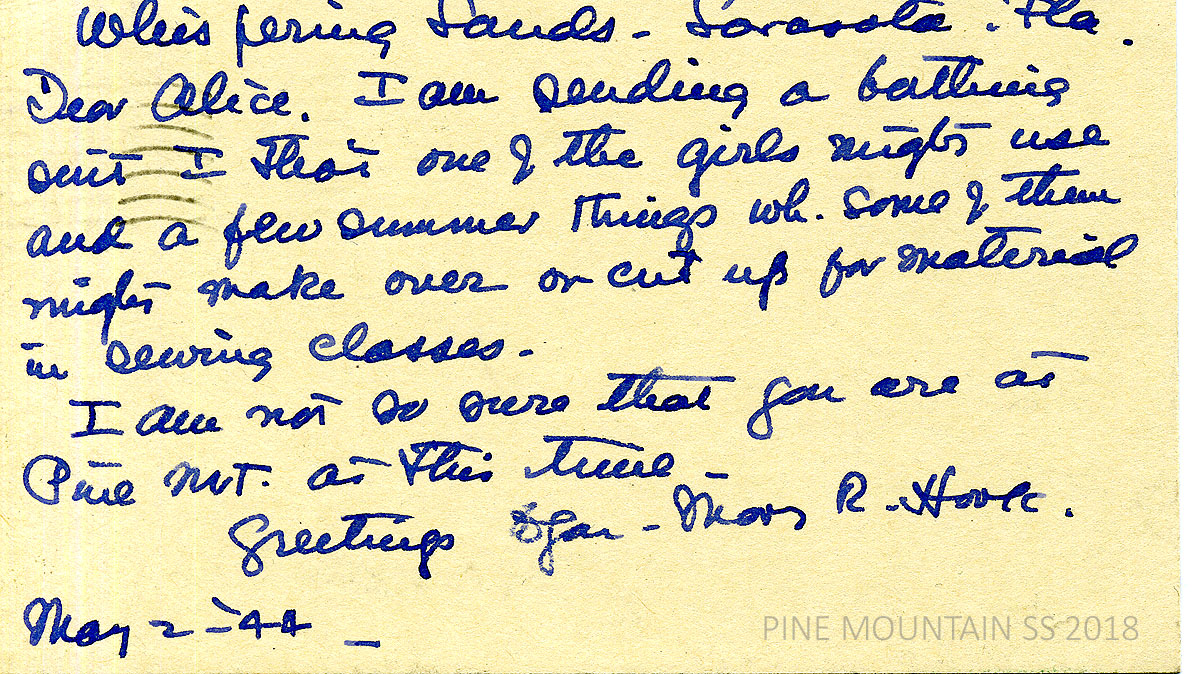 Whispering Sands - Sarasota. Fla.
Dear Alice. I am sending a bathing
suit I that one of the girls might use
and a few summer things wh. some of them
might make over or cut up for material
in sewing classes.
I am not so sure that you are at
Pine Mt. at this time -
Greetings - Mary R.
May 2 - 44 -
PINE MOUNTAIN SS 2018